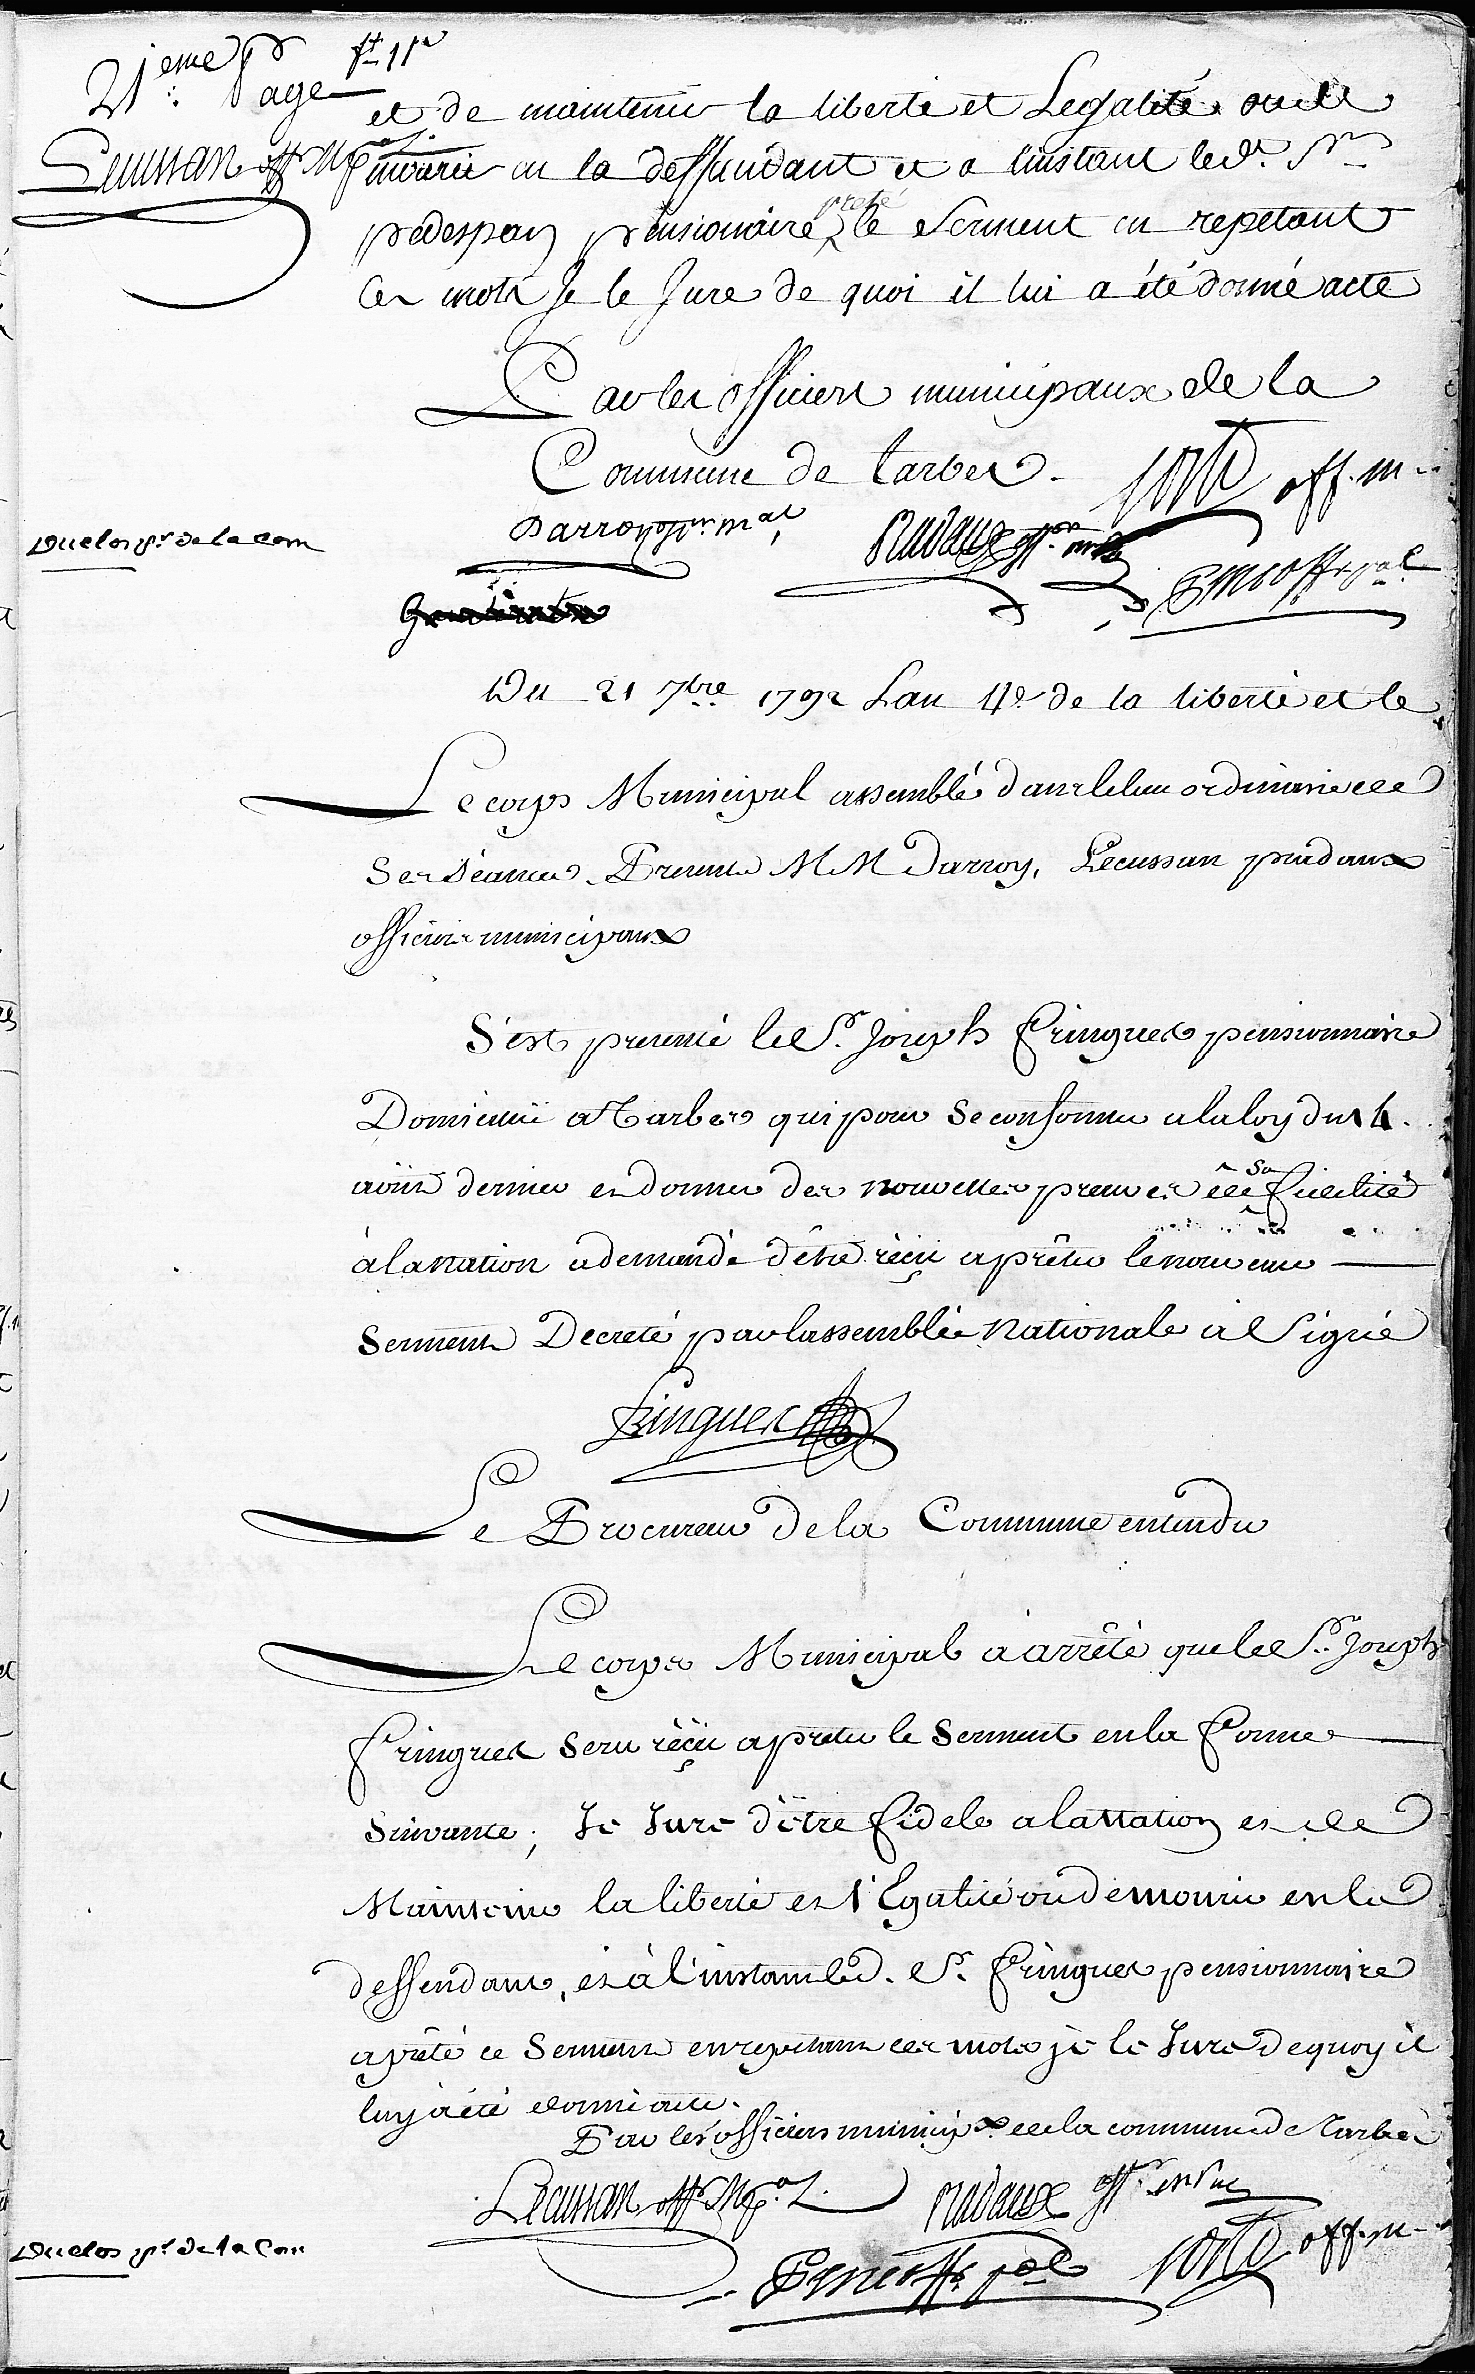 21.eme Page
et de maintenir la liberté et Legalité ou de
Lecussan off. Mpal.
mourir en la deffendant et a linstant led. Sr
prété
pedespan pensionaire le Serment en repetant
Ces mots Je le Jure de quoi il lui a été donné acte
Par les officiers municipaux de la
Commune de tarbes.
off. m
Darroy offr. mal
offr.
Duclos pr. de la Com
Du 21 7bre 1792 Lan 4e de la liberté et le
Le corps Municipal assemblé dans le lieu ordinaire de
Ses séances. Presents MM Darroy, Lecussan pradaux
officiers municipaux
S'est presenté le Sr. Joseph Fringuet pensionnaire
Domicilié a Tarbes qui pour se conformer a la loy du 14.
août dernier et donner des nouvelles preuves de sa fidelité
à la nation a demandé d'être reçu a prêter le nouveau
Serment Decreté par lassemblée Nationale à Signé
fringuet
Le Procureur de la Commune entendu
Le corps Municipal à arrêté que le Sr. Joseph
fringuet sera reçu a preter le Serment en la forme
Suivante; Je Jure d'être fidele a la Nation et de
Maintenir la liberté et l'Egalité ou de mourir en la
deffendant, et à l'instant led. Sr. fringuet pensionnaire
a prêté ce Serment en repetant ces mots je le Jure de quoy il
luy à été donné acte.
Par les officiers municipx. de la commune de Tarbes
Lecussan off. Mpal.
pradaux offr.
Duclos pr. de la Com
off. m